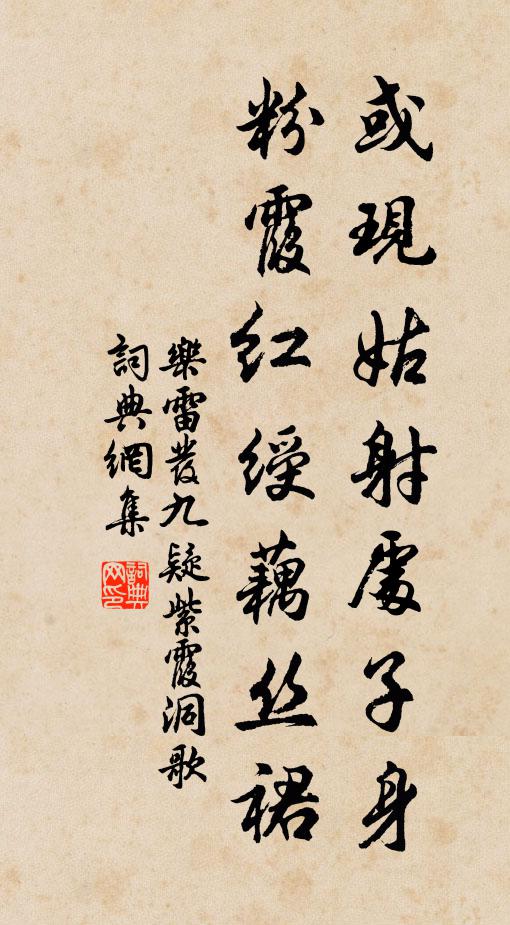 或現姑射處子身
粉霞紅綬藕丝裙
樂雷發九疑紫霞洞歌
詞典網集
詞典
网印